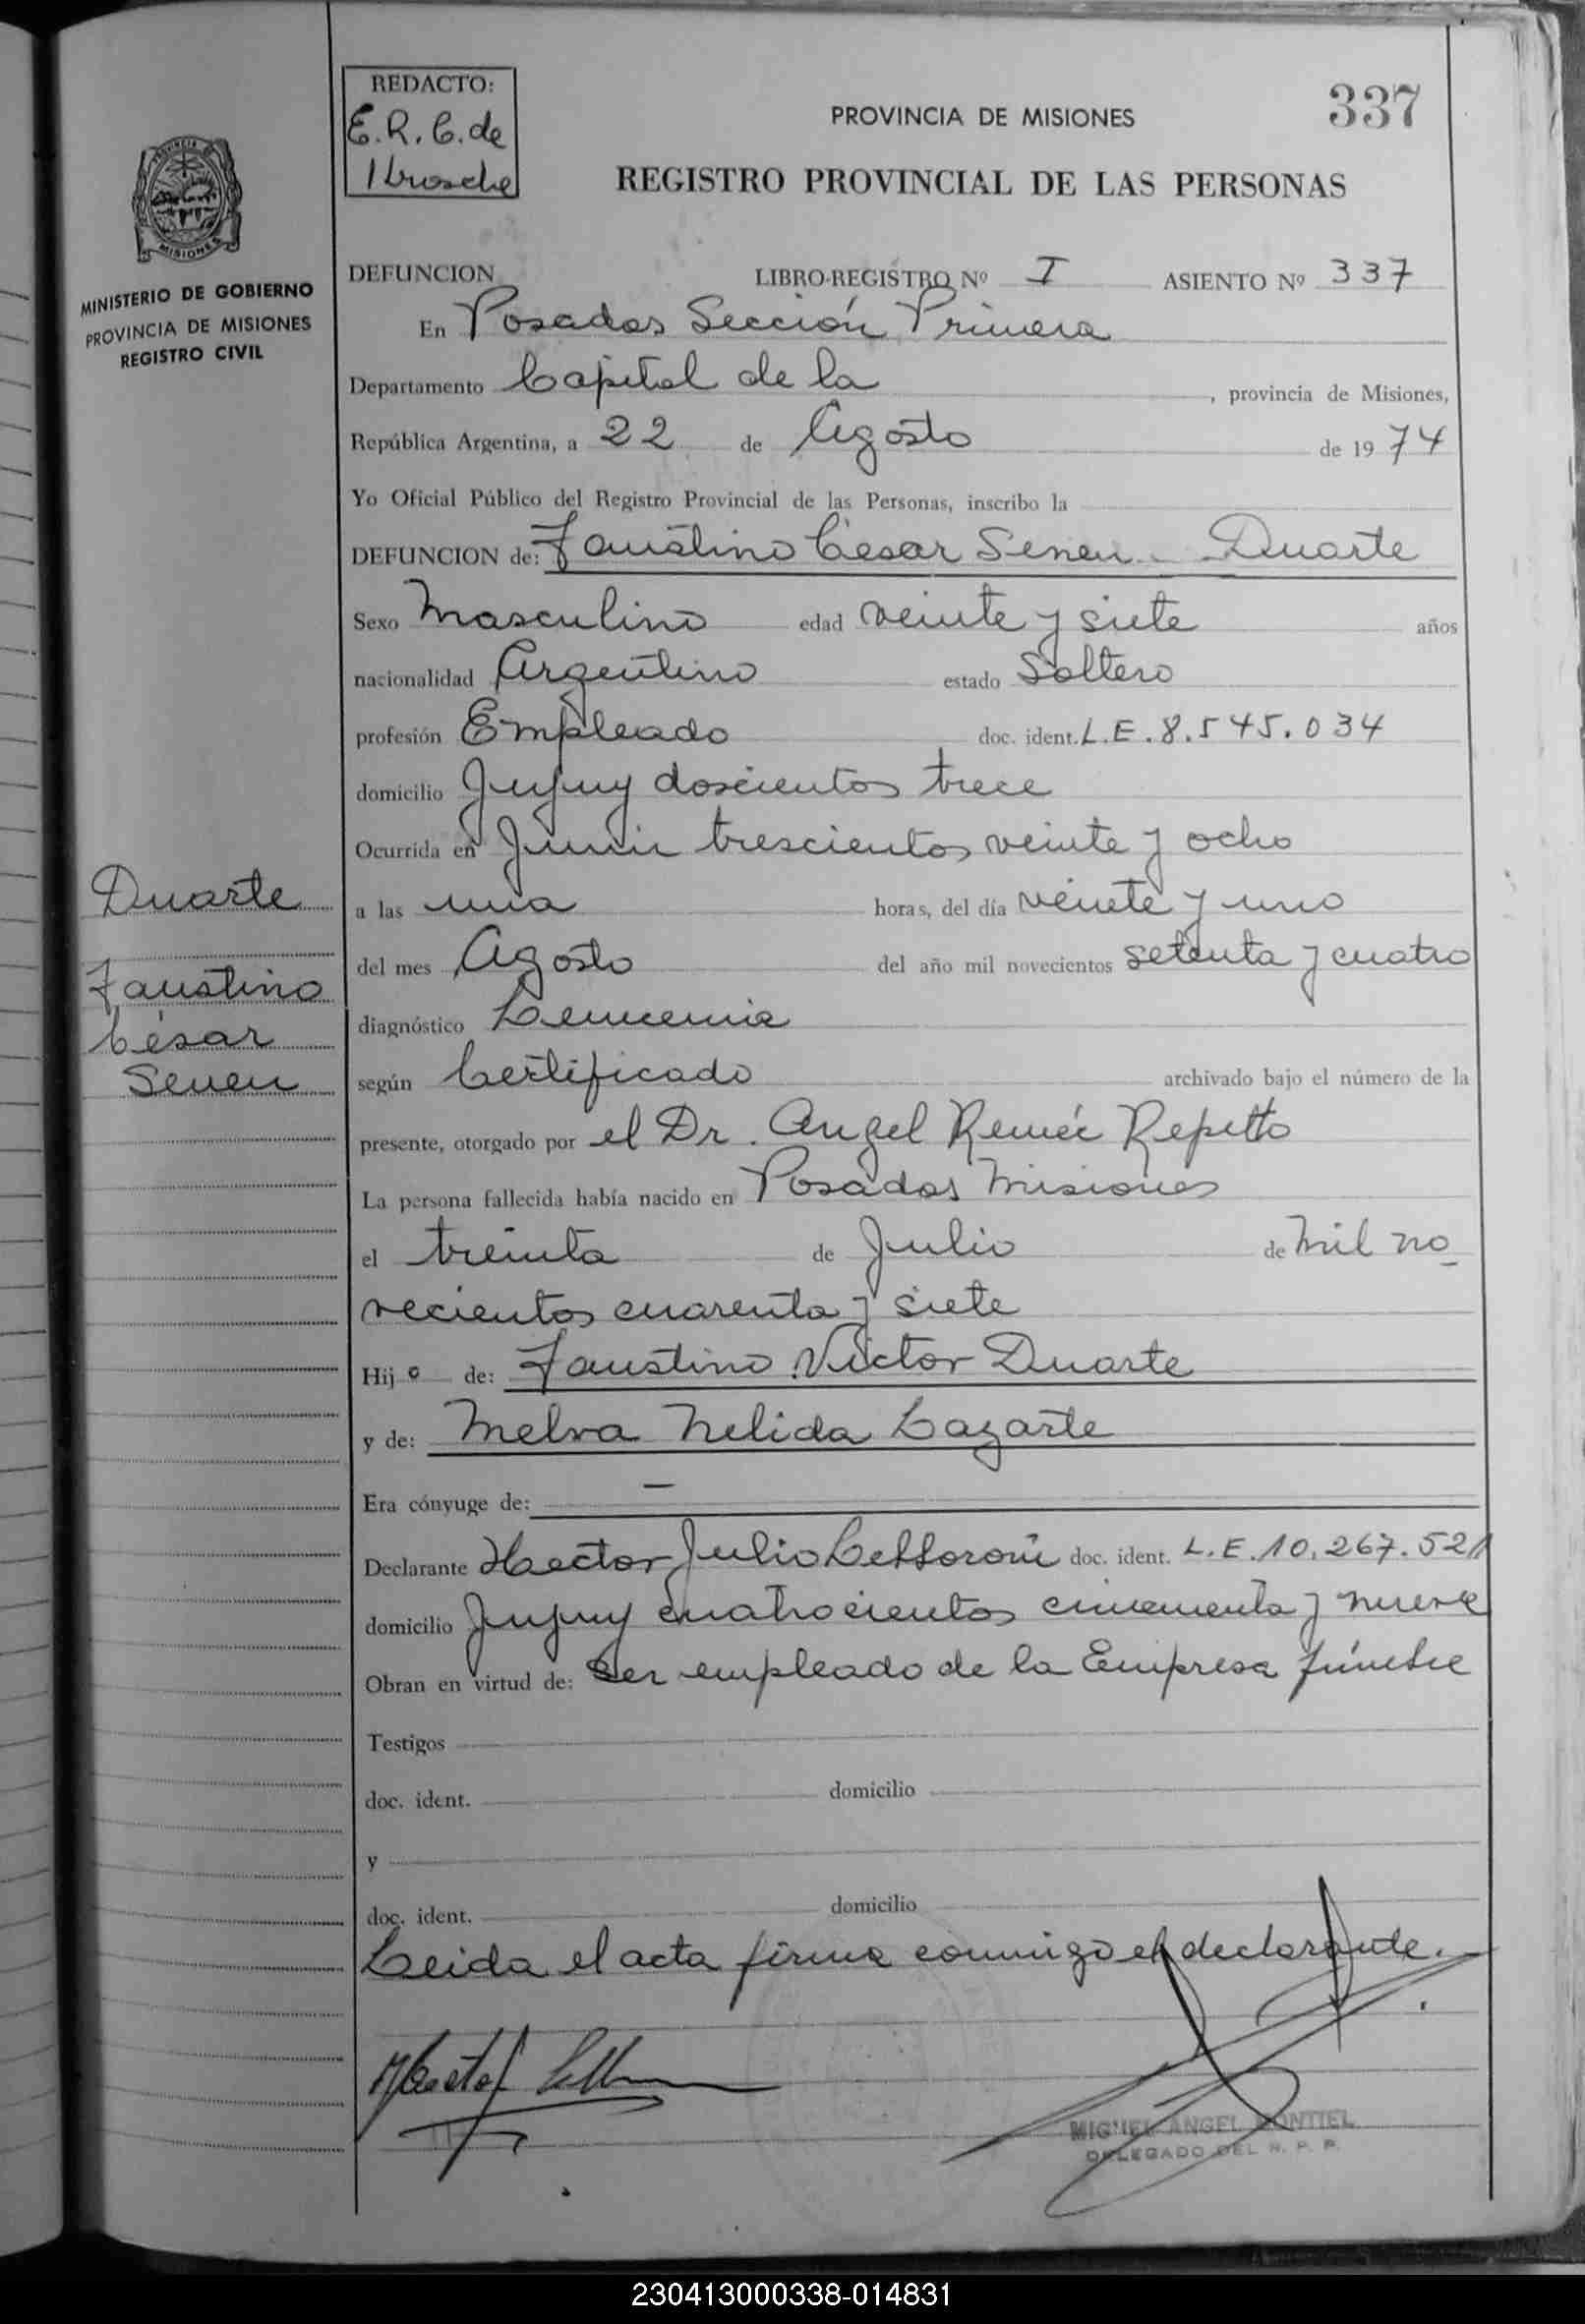 REDACTO:
E.R.C. de
PROVINCIA DE MISIONES
337
REGISTRO PROVINCIAL DE LAS PERSONAS
PROVINCIA DE
MISIONES
MINISTERIO DE GOBIERNO
PROVINCIA DE MISIONES
REGISTRO CIVIL
DEFUNCION LIBRO-REGISTRO Nº I ASIENTO Nº 337
En Posadas Sección Primera
Departamento Capital de la , provincia de Misiones,
República Argentina, a 22 de Agosto de 1974
Yo Oficial Público del Registro Provincial de las Personas, inscribo la
DEFUNCION de: Faustino César Senen Duarte
Sexo Masculino edad veinte y siete años
nacionalidad Argentino estado Soltero
profesión Empleado doc. ident. L.E. 8.545.034
domicilio Jujuy doscientos trece
Ocurrida en Junin trescientos veinte y ocho
a las una horas, del día veinte y uno
del mes Agosto del año mil novecientos setenta y cuatro
diagnóstico Leucemia
según Certificado archivado bajo el número de la
presente, otorgado por el Dr. Angel Reneé Repetto
La persona fallecida había nacido en Posadas Misiones
el treinta de Julio de mil no_
vecientos cuarenta y siete
Hijo de: Faustino Victor Duarte
y de: Melva Nelida Lazarte
Era cónyuge de: —
Declarante Hector Julio doc. ident. L.E. 10.267.521
domicilio Jujuy cuatrocientos cincuenta y nueve
Obran en virtud de: Ser empleado de la Empresa fúnebre
Testigos
doc. ident. domicilio
y
doc. ident. domicilio
Leida el acta firma conmigo el declarante.
MIGUEL ANGEL MONTIEL
DELEGADO DEL R. P. P.
Duarte
Faustino
César
Senen
230413000338-014831